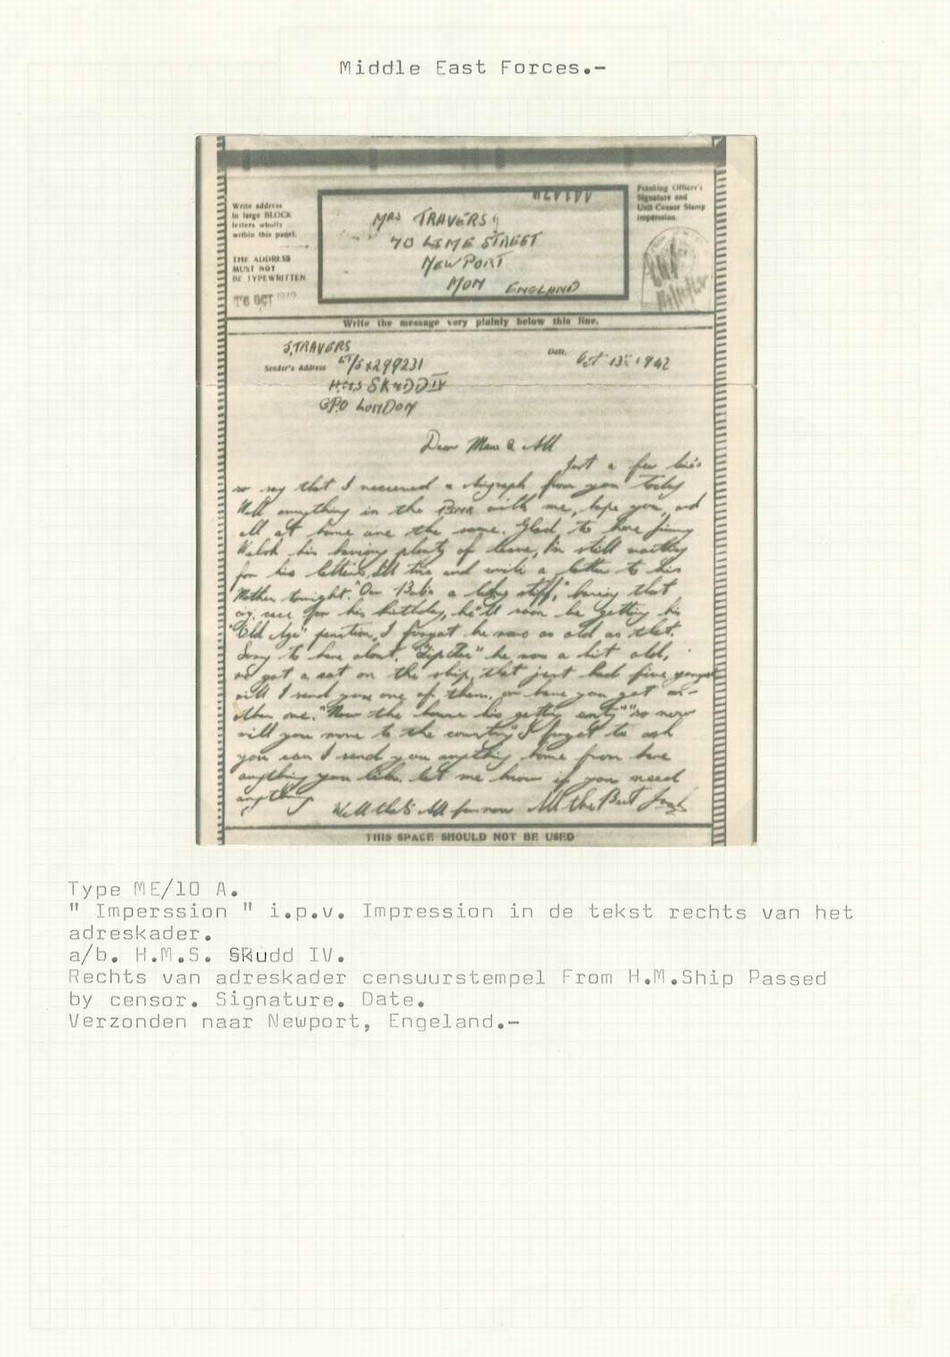 Middle East Forces.-
Write address
in large BLOCK
letters wholly
within this panel.
THE ADDRESS
MUST NOT
BE TYPEWRITTEN
16 OCT 1942
MRS TRAVERS
70 LIME STREET
NEWPORT
MON ENGLAND
Passing Officer's
Signature and
Unit Censor Stamp
Imperssion.
Write the message very plainly below this line.
J. TRAVERS
Sender's Address
HMS SKUDD IV
GPO LONDON
Date. Oct 13th 1942
Dear Mam & All
Just a few lines
to say that I received a airgraph from you today
Well everything in the with me, hope you and
all at home are the same. Glad to hear Jimmy
Walsh his having plenty of leave, I'm still waiting
for his letters, I'll try and write a letter to his
Mother tonight. "Our a stiff," having that
for his birthday, he'll soon be getting his
"Old Age" pension, I forgot he was as old as that.
Sorry to hear about he was a bit old,
we got a cat on the ship, that just had five
will I send you one of them, or have you got an-
other one. "Now the house his getting so now
will you move to the country" I forgot to ask
you can I send you anything home from here
anything you like let me know if you need
anything
Well that's all for now All the Best
THIS SPACE SHOULD NOT BE USED
Type ME/10 A.
" Imperssion " i.p.v. Impression in de tekst rechts van het
adreskader.
a/b. H.M.S. SKudd IV.
Rechts van adreskader censuurstempel From H.M.Ship Passed
by censor. Signature. Date.
Verzonden naar Newport, Engeland.-